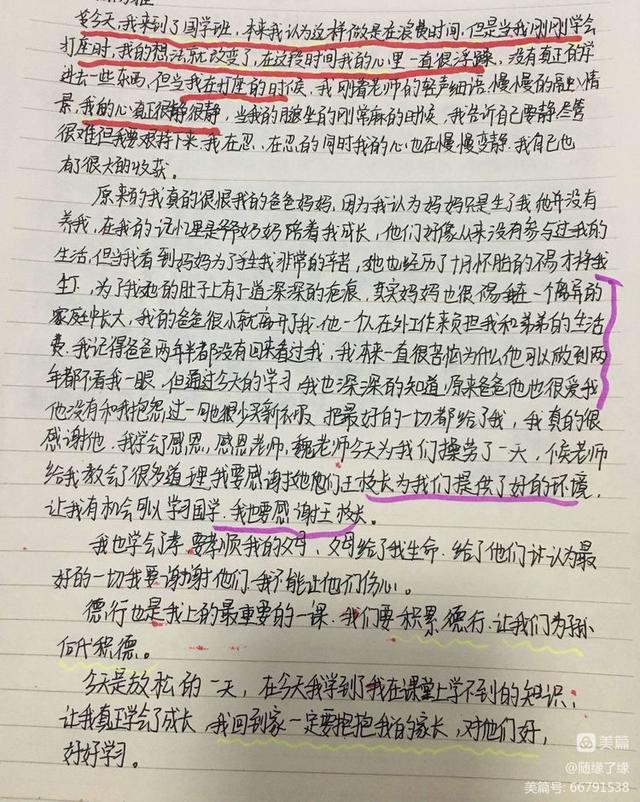 今天,我来到了国学班,本来我认为这样做是在浪费时间,但是当我刚刚学会
打座时,我的想法就改变了,在这段时间我的心里一直很浮躁,没有真正的学
进去一些东西,但当我在打座的时候,我刚着老师的轻声细语,慢慢的融入情
景,我的心真正很静很静,当我的腿坐的刚常麻的时候,我告诉自己要静尽管
很难但我要坚持下来,我在忍、在忍的同时我的心也在慢慢变静.我自己也
有了很大的收获。
原来的我真的很恨我的爸爸妈妈,因为我认为妈妈只是生了我他并没有
养我,在我的记忆里是爷奶奶陪着我成长,他们好像从来没有参与过我的
生活,但当我看到妈妈为了生我非常的辛苦,她也经历了十月怀胎的不易才将我
生下,为了我她的肚子上有了道深深的疤痕,其实妈妈也很不易我在一个离异的
家庭中长大,我的爸爸很小就离开了我.他一个人在外工作来负担我和弟弟的生活
费.我记得爸爸两年半都没有回来看过我,我本来一直很苦恼为什么他可以放到两
年都不看我一眼,但通过今天的学习,我也深深的知道,原来爸爸他也很爱我
他没有和我抱怨过一回他很少买新衣服,把最好的一切都给了我,我真的很
感谢他,我学会了感恩,感恩老师,魏老师今天为我们操劳了一天,侯老师
给我教会了很多道理,我要感谢她他们王校长为我们提供了好的环境,
让我有机会可以学习国学.我也要感谢王校长。
我也学会了孝.要孝顺我的父母、父母给了我生命.给了他们认为最
好的一切我要谢谢他们.我不能让他们伤心。
德行也是我上的最重要的一课.我们要积累德行.让我们为子孙
何代积德。
今天是放松的一天,在今天我学到了我在课堂上学不到的知识;
让我真正学会了成长,我回到家一定要抱抱我的家长,对他们好,
好好学习。
美篇
@随缘了缘
美篇号: 66791538